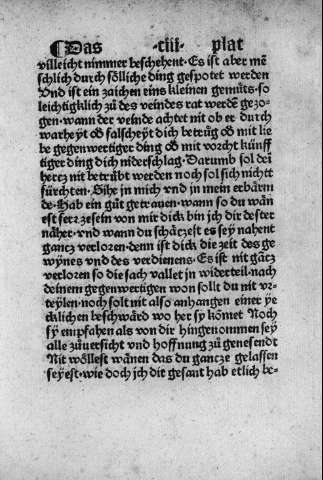 ¶Das ·ciii· plat
villeicht nimmer beschehent· Es ist aber mē
schlich durch söliche ding gespotet werden
Vnd ist ein zaichen eins kleinen gemüts· so
leichtigklich zů des veindes rat werdē gezo-
gen· wann der veinde achtet nit ob er durch
warheyt oß falscheÿt dich betrůg oß mit lie
be gegenwertiger ding oß mit vorcht künff
tiger ding dich niderschlag· Darumb sol dein
hercz nit betrůbt werden noch sol sich nichtt
fürchten· Sihe jn mich vnd jn mein erbärm
de· Hab ein gůt getrauen· wann so du wän
est ferr zesein von mir dick bin jch dir dester
näher· vnd wann du schäczest es seÿ nahent
gancz verloren· denn ist dick die zeit des ge
wÿnes vnd des verdienens· Es ist nit gācz
verloren so die sach vallet jn widerteil· nach
deinem gegenwertigen won sollt du nit vr-
teÿlen· noch solt nit also anhangen einer ÿe
cklichen beschwärd wo her sÿ kömet Noch
sÿ empfahen als von dir hingenommen seÿ
alle zůuersicht vnd hoffnung zů genesendt
Nit wöllest wänen das du gancze gelassen
seÿest· wie doch jch dir gesant hab etlich be-